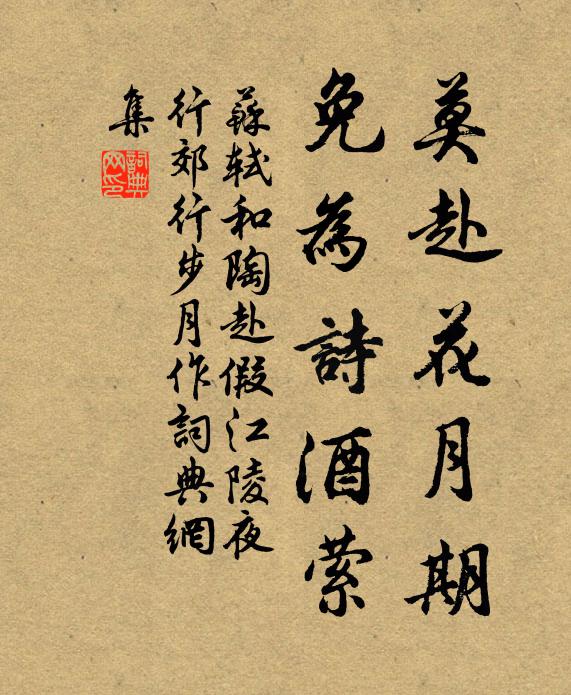 莫赴花月期
免為詩酒縈
蘇軾和陶赴假江陵夜
行郊行步月作詞典網
集
詞典
网印